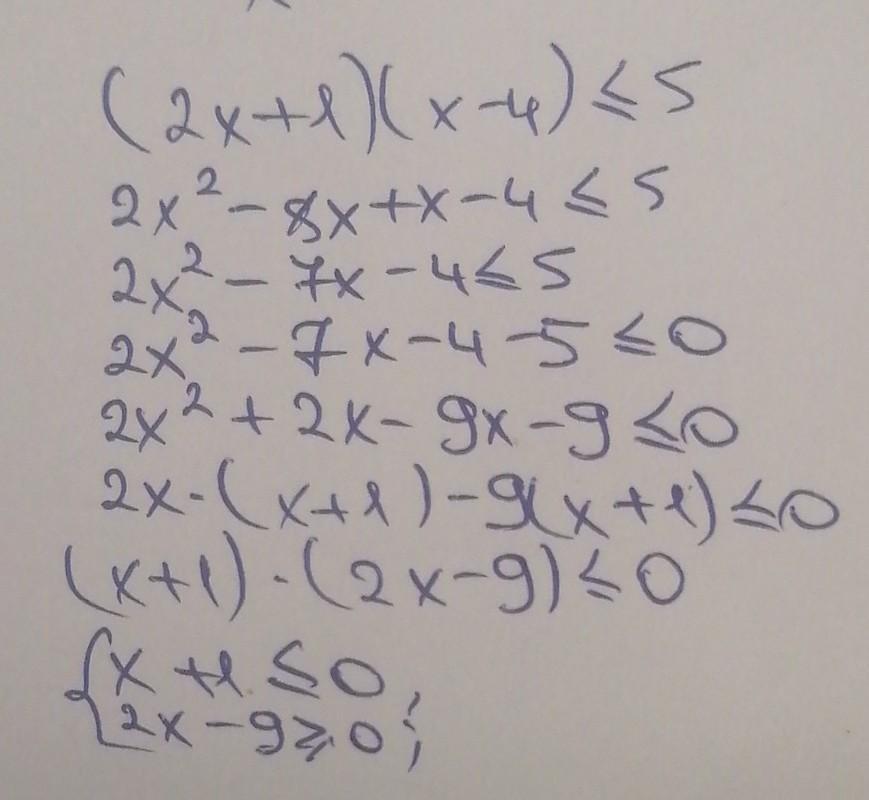 (2x+1)(x-4)≤5
2x²-8x+x-4≤5
2x²-7x-4≤5
2x²-7x-4-5≤0
2x²+2x-9x-9≤0
2x·(x+1)-9(x+1)≤0
(x+1)·(2x-9)≤0
{x+1≤0,
2x-9≥0;